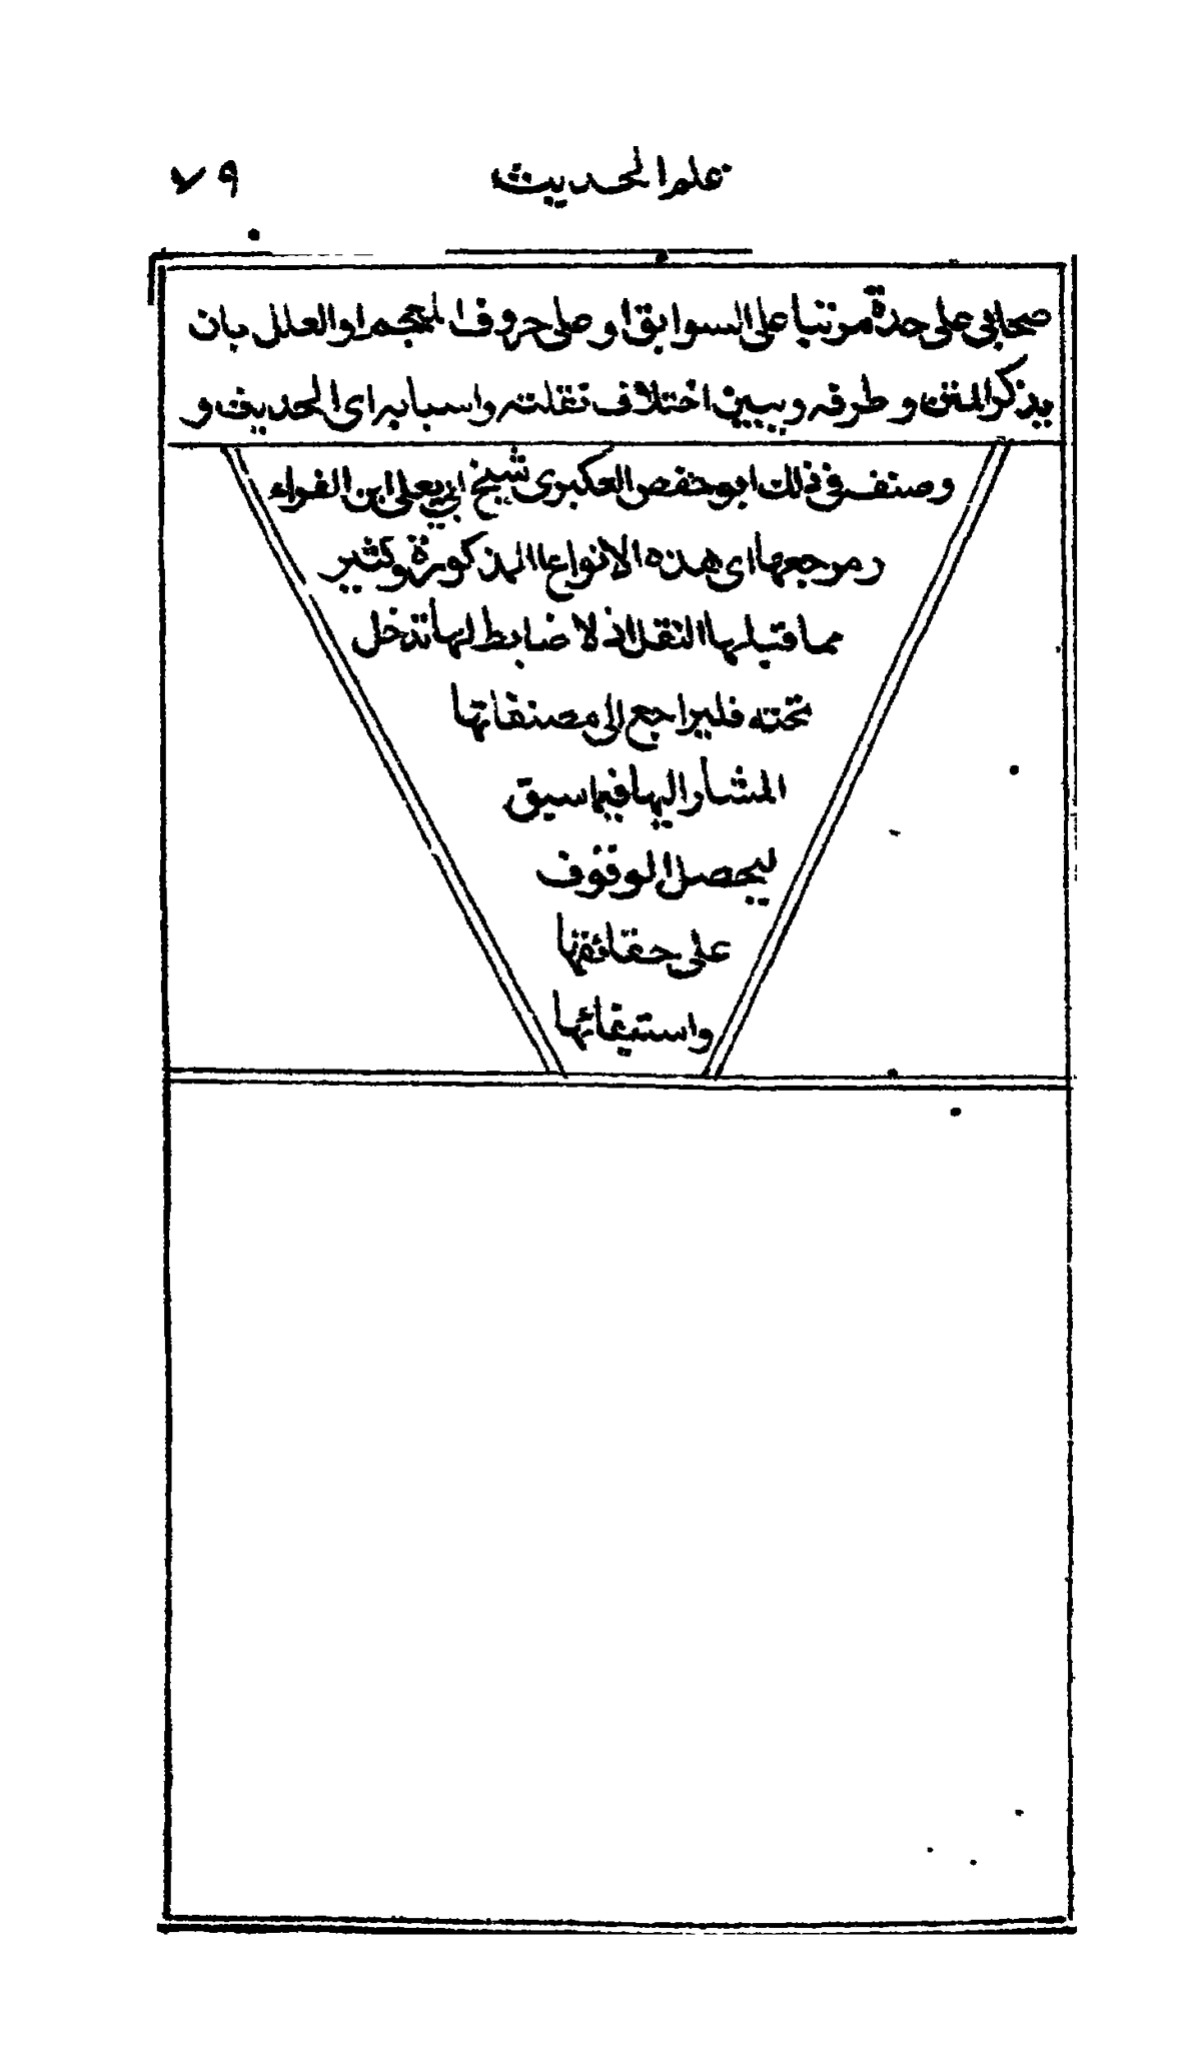 علم الحديث ٧٩
صحابي على حدة مرتبا على السوابق او على حروف المعجم او العلل بان
يذكر المتن وطرقه ويبين اختلاف نقلته واسبابه اى الحديث و
وصنف فى ذلك ابو حفص العكبرى شيخ ابي يعلى ابن الفراء
ومرجعها اى هذه الانواع المذكورة وكثير
مما قبلها النقل اذ لا ضابط لها تدخل
تحته فليراجع الى مصنفاتها
المشار اليها فيما سبق
ليحصل الوقوف
على حقائقها
واستيفائها